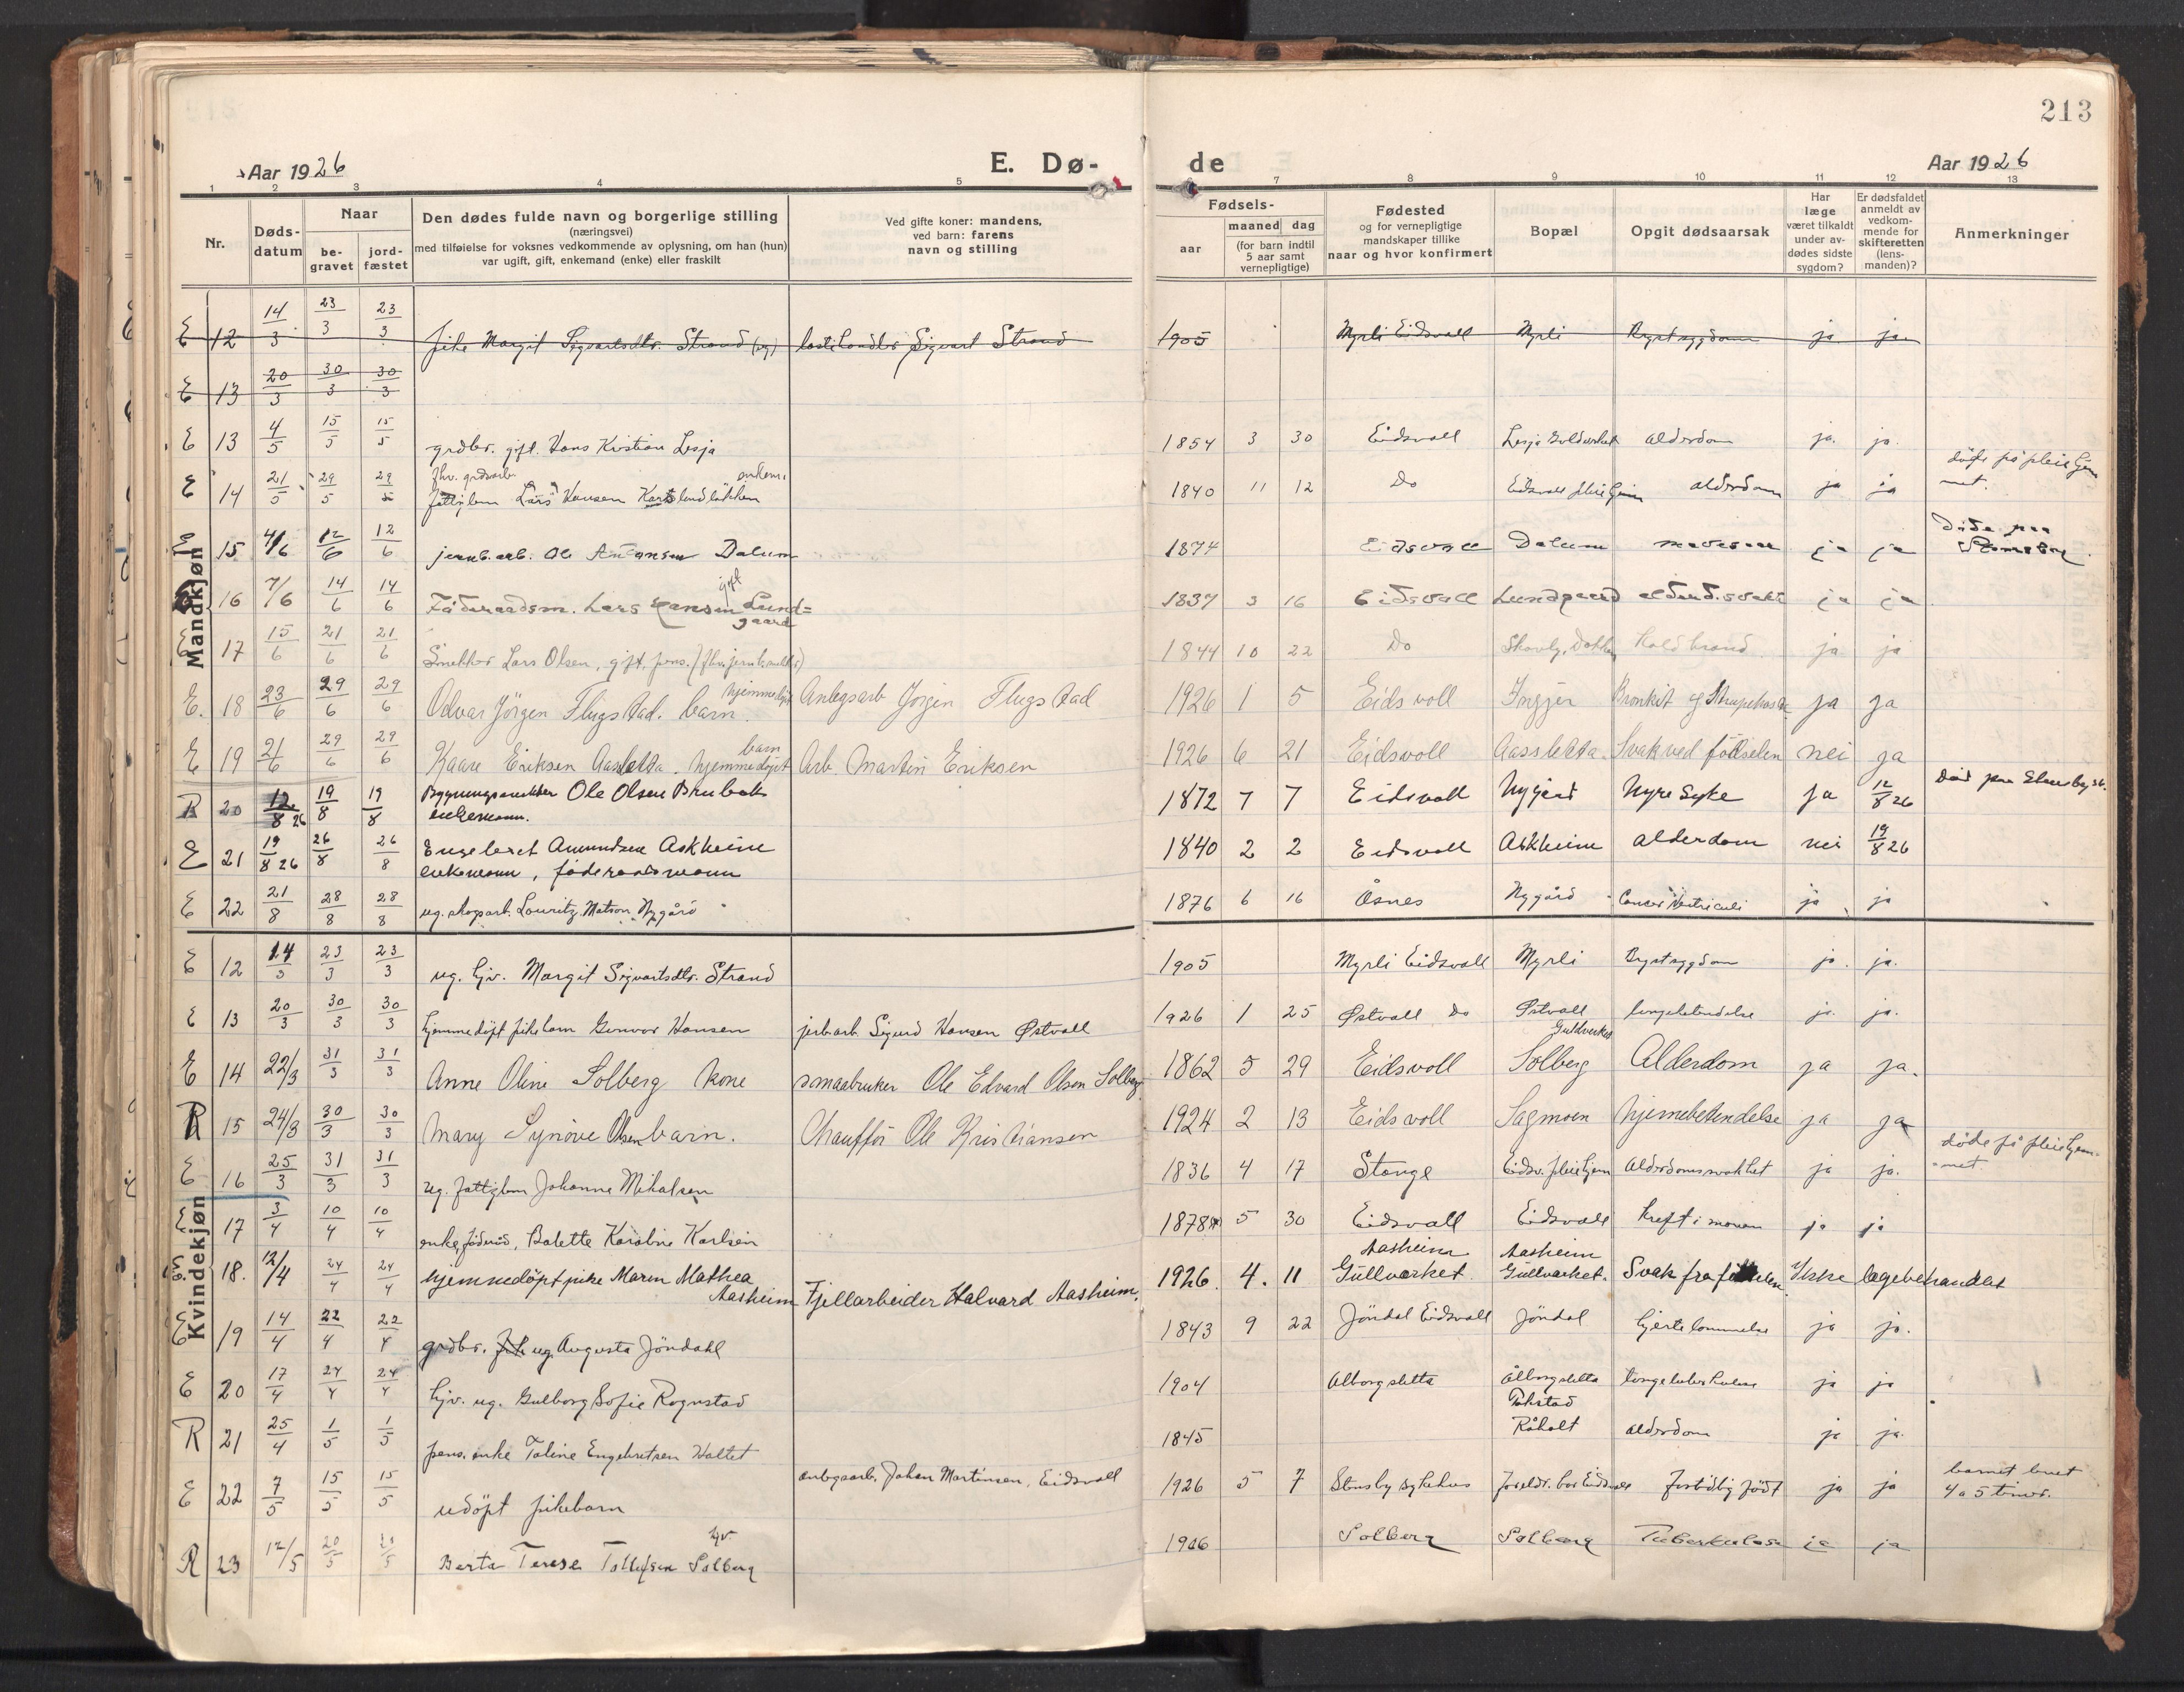 213
Aar 1926
E. Dø-
de
Aar 1926
1 2 3 4 5 7 8 9 10 11 12 13
Nr.
Døds-
datum
Naar
be-
gravet
jord-
fæstet
Den dødes fulde navn og borgerlige stilling
(næringsvei)
med tilføielse for voksnes vedkommende av oplysning, om han (hun)
var ugift, gift, enkemand (enke) eller fraskilt
Ved gifte koner: mandens,
ved barn: farens
navn og stilling
Fødsels-
aar
maaned dag
(for barn indtil
5 aar samt
vernepligtige)
Fødested
og for vernepligtige
mandskaper tillike
naar og hvor konfirmert
Bopæl
Opgit dødsaarsak
Har
læge
været tilkaldt
under av-
dødes sidste
sygdom?
Er dødsfaldet
anmeldt av
vedkom-
mende for
skifteretten
(lens-
manden)?
Anmerkninger
Mandkjøn
E 12 14/3 23/3 23/3 Pike Margit Sigvartsdtr. Strand (ug) Sigvart Strand 1905 Myrli Eidsvoll Myrli Brystsygdom ja ja
E 13 20/3 30/3 30/3
E 13 4/5 15/5 15/5 grdbr. gift. Hans Kristian Lesja 1854 3 30 Eidsvoll Lesja Guldverket alderdom ja. ja.
E 14 21/5 29/5 29/5 fhv. grdsarb. enkem.
fattiglem Lars Hansen 1840 11 12 Do Eidsvoll pleiehjem alderdom ja ja døde på pleiehjem
met.
E 15 4/6 12/6 12/6 jernb. arb. Ole Andersen Dalum 1874 Eidsvoll Dalum ja ja Døde paa
16 7/6 14/6 14/6 Føderaadsm. Lars Hansen Lund=
gaard gift 1837 3 16 Eidsvoll Lundgaard alderd.svakh ja ja
E 17 15/6 21/6 21/6 Snekker Lars Olsen, gift, pens. (fhv. jernb.snekker) 1844 10 22 Do Skovly, Dokka Koldbrand ja ja
E. 18 23/6 29/6 29/6 Odvar Jörgen Flugstad. barn. hjemmedöpt Anlegsarb Jörgen Flugstad 1926 1 5 Eidsvoll Ingjer Bronkit og Strupehoste ja ja
E 19 21/6 29/6 29/6 Kaare Eriksen Aasletta. hjemmedöpt barn Arb. Martin Eriksen 1926 6 21 Eidsvoll Aassletta Svak ved födselen nei ja
R 20 12/8 26 19/8 19/8 Bygningssnekker Ole Olsen Brubak
enkemann. 1872 7 7 Eidsvoll Nygård Nyre syke ja 12/8 26 Död paa Stensby sk.
E 21 19/8 26 26/8 26/8 Engebret Amundsen Askheim
enkemann, föderaadsmann 1840 2 2 Eidsvoll Askheim alderdom nei 19/8 26
E 22 21/8 28/8 28/8 ug. skogsarb. Lauritz Matson Nygård 1876 6 16 Åsnes Nygård Cancer Ventriculi ja ja
Kvindekjøn
E 12 14/3 23/3 23/3 ug. hjv. Margit Sigvartsdtr. Strand 1905 Myrli Eidsvoll Myrli Brystsygdom ja. ja.
E 13 20/3 30/3 30/3 hjemmedöpt pikebarn Gunvor Hansen jerb.arb. Sigurd Hansen Østvoll 1926 1 25 Østvoll Do Østvoll lungebetendelse ja. ja.
E 14 22/3 31/3 31/3 Anne Oline Solberg kone smaabruker Ole Edvard Olsen Solberg 1862 5 29 Eidsvoll Guldverket
Solberg Alderdom ja ja.
R 15 24/3 30/3 30/3 Mary Synöve Olsen barn. Chaufför Ole Kristiansen 1924 2 13 Eidsvoll Sagmoen hjernebetendelse ja ja
E 16 25/3 31/3 31/3 ug. fattiglem Johanne Mikalsen 1836 4 17 Stange Eidsv. pleiehjem Alderdomssvakhet ja ja. døde på pleiehjem-
-met
E 17 3/4 10/4 10/4 enke, föderåd, Balette Karoline Karlsen 1878 5 30 Eidsvoll Eidsvoll kreft i maven ja ja
18. 12/4 24/4 24/4 hjemmedöpt pike Maren Mathea
Aasheim Fjellarbeider Halvard Aasheim. 1926. 4. 11 Aasheim
Gullverket. Aasheim
Gullverket. Svak fra födselen. Ikke lægebehandlet
E 19 14/4 22/4 22/4 grdbr. ug. Augusta Jöndahl 1843 9 22 Jöndal Eidsvoll Jöndal hjertelammelse ja ja.
E 20 17/4 24/4 24/4 hjv. ug. Gulborg Sofie Rognstad 1904 Ålborgsletta Ålborgsletta lungetuberkulose ja ja
R 21 25/4 1/5 1/5 pens. enke Taline Engebretsen Holtet 1845 Råholt alderdom ja ja.
E 22 7/5 15/5 15/5 udöpt pikebarn anlegsarb. Johan Martinsen, Eidsvoll 1926 5 7 Stensby sykehus foreldr. bor Eidsvoll fortidlig födt ja ja barnet levet
4 a 5 timer.
R 23 12/5 20/5 20/5 Berta Terese Tollefsen Solberg hjv. 1906 Solberg Solberg Tuberkulose ja ja